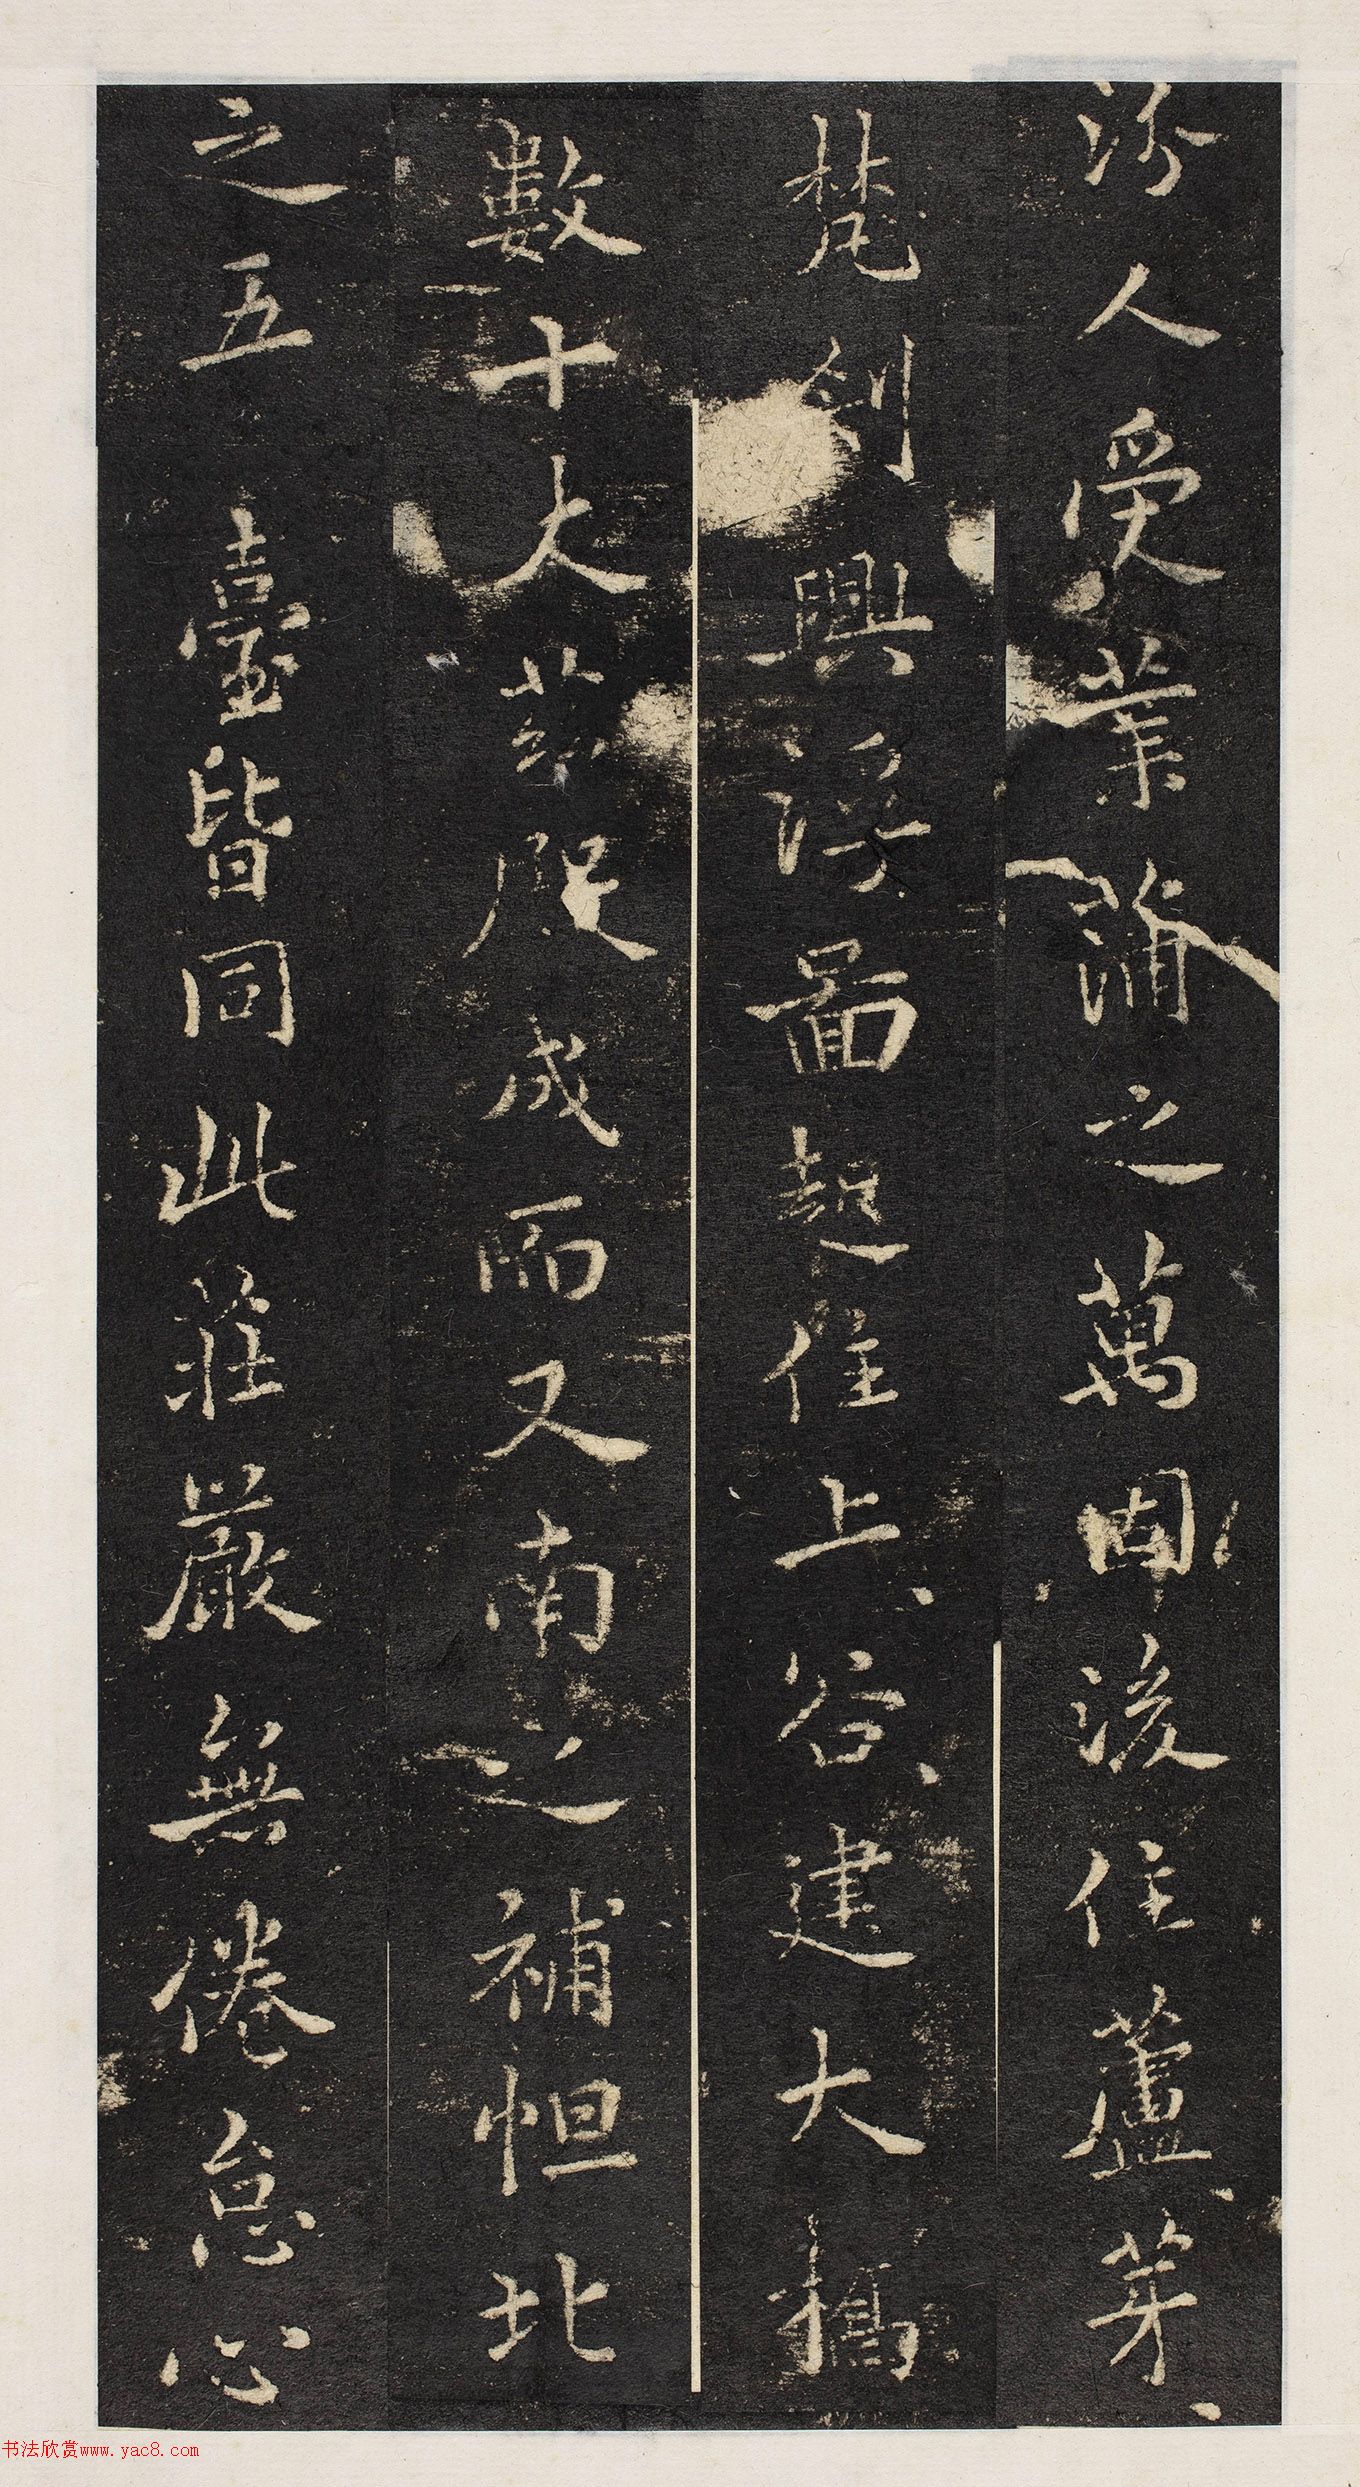 汾人受業蒲之萬固後住蘆芽
梵剎興浮圖起住上谷建大橋
數十大茲殿成而又南之補怛北
之五臺皆同此莊嚴無倦怠心
书法欣赏www.yac8.com